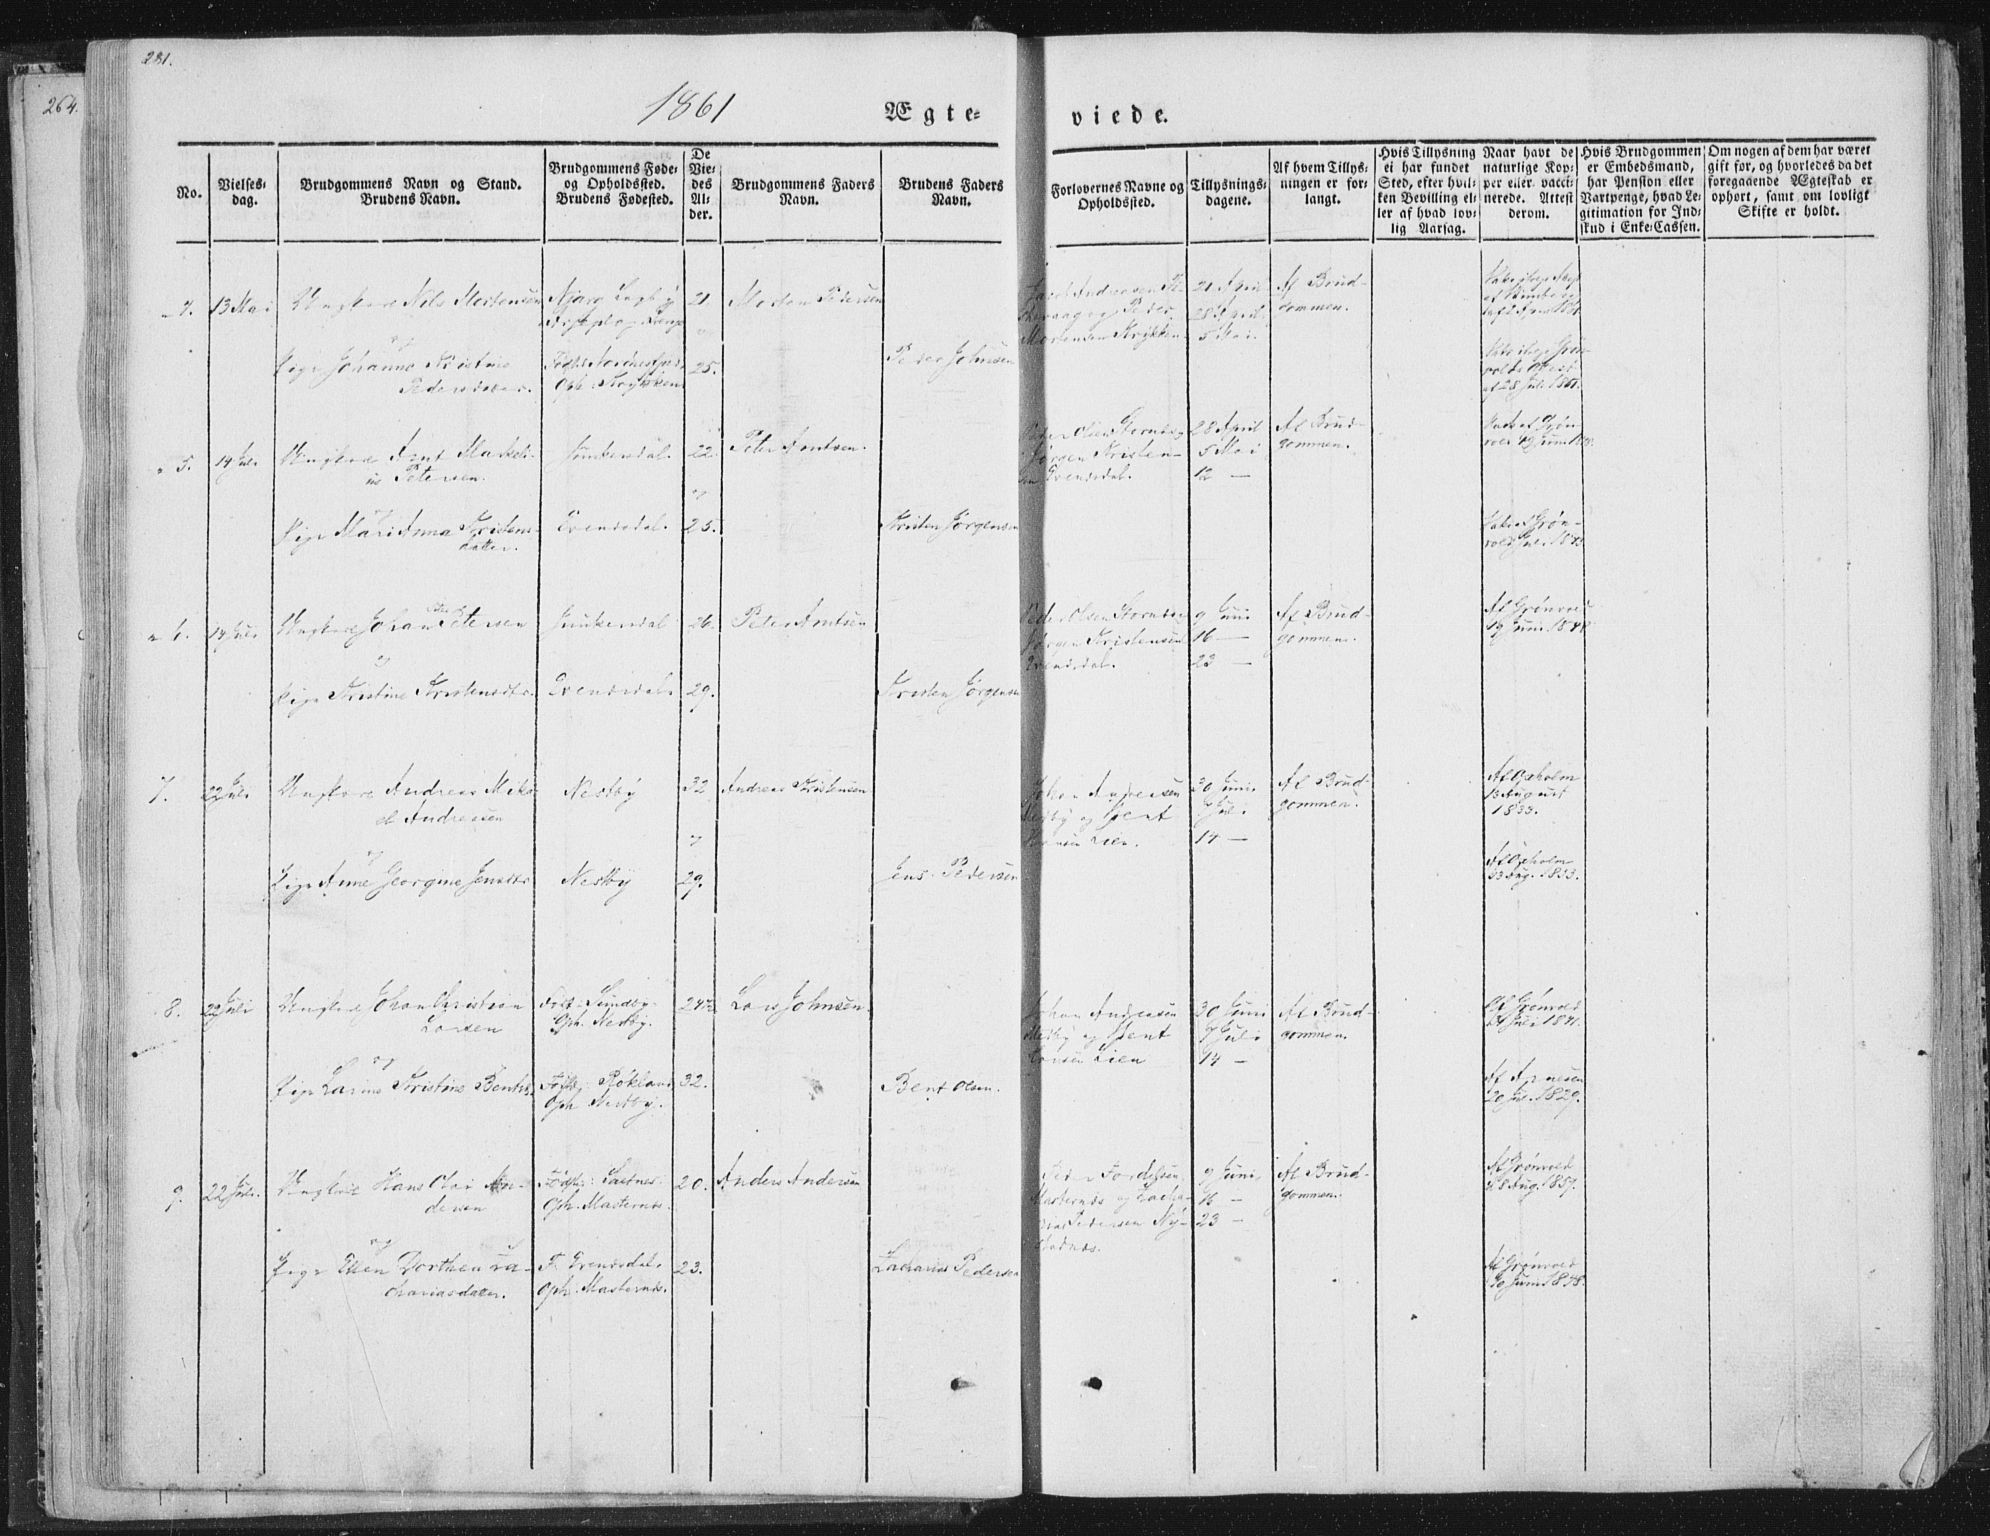 281.
264.
1861
Ægte=
viede.
No.
Vielses=
dag.
Brudgommens Navn og Stand.
Brudens Navn.
Brudgommens Føde=
og Opholdssted.
Brudens Fødested.
De
Vie=
des
Al=
der.
Brudgommens Faders
Navn.
Brudens Faders
Navn.
Forlovernes Navne og
Opholdssted.
Tillysnings=
dagene.
Af hvem Tillys=
ningen er for=
langt.
Hvis Tillysning
ei har fundet
Sted, efter hvil=
ken Bevilling el=
ler af hvad lov=
lig Aarsag.
Naar havt de
naturlige Kop=
per eller vacci=
nerede. Attest
derom.
Hvis Brudgommen
er Embedsmand,
har Pension eller
Vartpenge, hvad Le=
gitimation for Ind=
skud i Enke=Cassen.
Om nogen af dem har været
gift før, og hvorledes da det
foregaaende Ægteskab er
ophørt, samt om lovligt
Skifte er holdt.
4. 13 Mai Ungkarl Nils Mortensen
21 Morten Pedersen
21 April
28 April
5 Mai
Af Brud-
gommen.
og
Pige Johanne Kristine
Pedersdatter.
25.
Peder Johnsen
5. 14 Juli Ungkarl Arnt Markeli-
us Petersen.
Junkersdal. 22. Peter Arntsen.
Peder Olsen Stornæs
Jørgen Kristen-
sen Evensdal.
28 April
5 Mai
12 —
Af Brud-
gommen.
og
Pige Mari Anna Kristens-
datter.
Evensdal. 25.
Kristen Jørgensen
6. 14 Juli Ungkarl Johan Petersen
Junkersdal 26 Peter Arntsen
Peder Olsen Stornæs
Jørgen Kristensen
Evensdal.
9 Juni
16 —
23 —
Af Brud-
gommen.
Af Grønvold
og
Pige Kristine Kristensdtr.
Evensdal. 29.
Kristen Jørgensen
7. 22 Juli Ungkarl Andreas Mika-
el Andreasen
Nestby 32 Andreas Kristensen
Johan Andersen
Nestby og Bent
Larsen Lien.
30 Juni
7 Juli
14 —
Af Brud-
gommen.
Af Oxholm
13 August
1833.
og
Pige Anne Georgine Jensdtr
Nestby 29.
Jens Pedersen
Af Oxholm
13 Aug. 1833.
8. 22 Juli Ungkarl Johan Christian
Larsen
Født: Sundby.
Oph. Nestby.
24½ Lars Johnsen.
Johan Andersen
Nestby og Bent
Larsen Lien
30 Juni
7 Juli
14 —
Af Brud-
gommen.
Af Grønvold
Juli 1841.
og
Pige Larine Kristine Bentsd.
Født: Røkland
Oph Nestby.
32.
Bent Olsen.
20 Jul. 1829.
9. 22 Juli. Ungkarl Hans Olai An-
dersen
Født: Saltnes.
Oph. Masternæs.
20. Anders Andersen
Peder
Masternæs og Zacha-
rias Pedersen
9 Juni
16 —
23 —
Af Brud-
gommen.
Af Grønvold
og
Pige Ellen Dorthea Za-
chariasdatter.
F. Evensdal.
Oph. Masternæs.
23.
Zacharias Pedersen
Af Grønvold
Juni 1848.